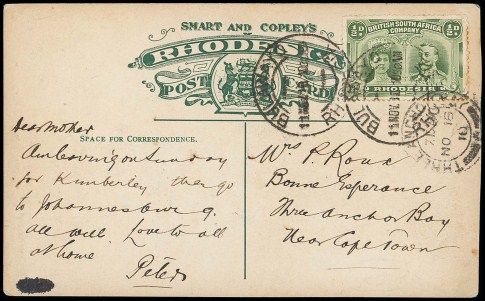 SMART AND COPLEY'S
RHODESIAN
POST CARD
SPACE FOR CORRESPONDENCE.
½d. BRITISH SOUTH AFRICA COMPANY ½d.
RHODESIA
BULAWAYO
BULAWAYO
THREE AN
NO 16
10
Dear Mother
Am leaving on Sunday
for Kimberley then go
to Johannesburg.
all well. Love to all
at home.
Peter
Mrs P. Roux
Bonne Esperance
Three Anchor Bay
Near Cape Town